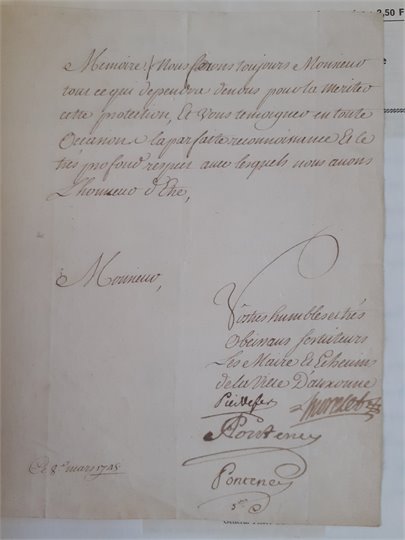 2,50 F
Memoire! Nous ferons toujours Monsieur
tout ce qui dependra de nous pour la meriter
cette protection, Et Vous temoigner en toute
Occasions la parfaite reconnoissance Et le
tres profond respect avec lesquels nous avons
L'honneur d'Etre,
Monsieur,
Vostres humbles et tres
Obeissans serviteurs
Les Maire Et Echevins
de la Ville Dauxonne
Ponteney
Ponteney
Ce 8e mars 1748